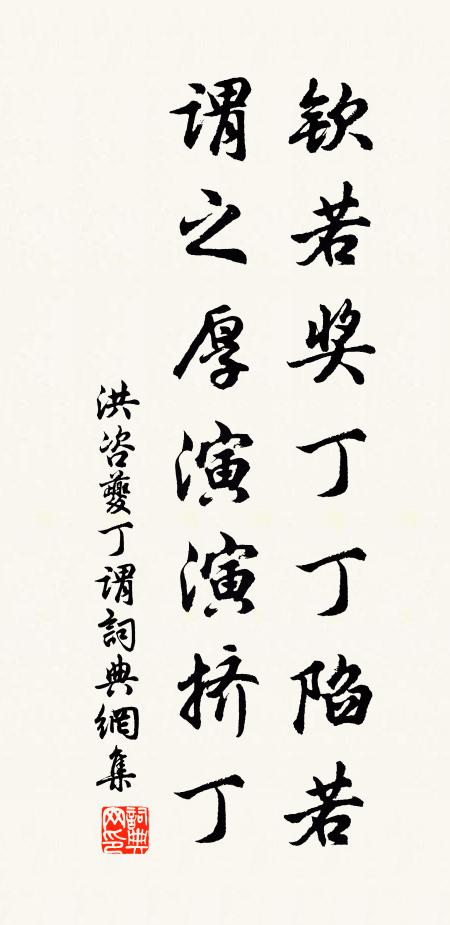 钦若奖丁丁陷若
谓之厚演演挤丁
洪咨夔丁谓詞典網集
詞典網印